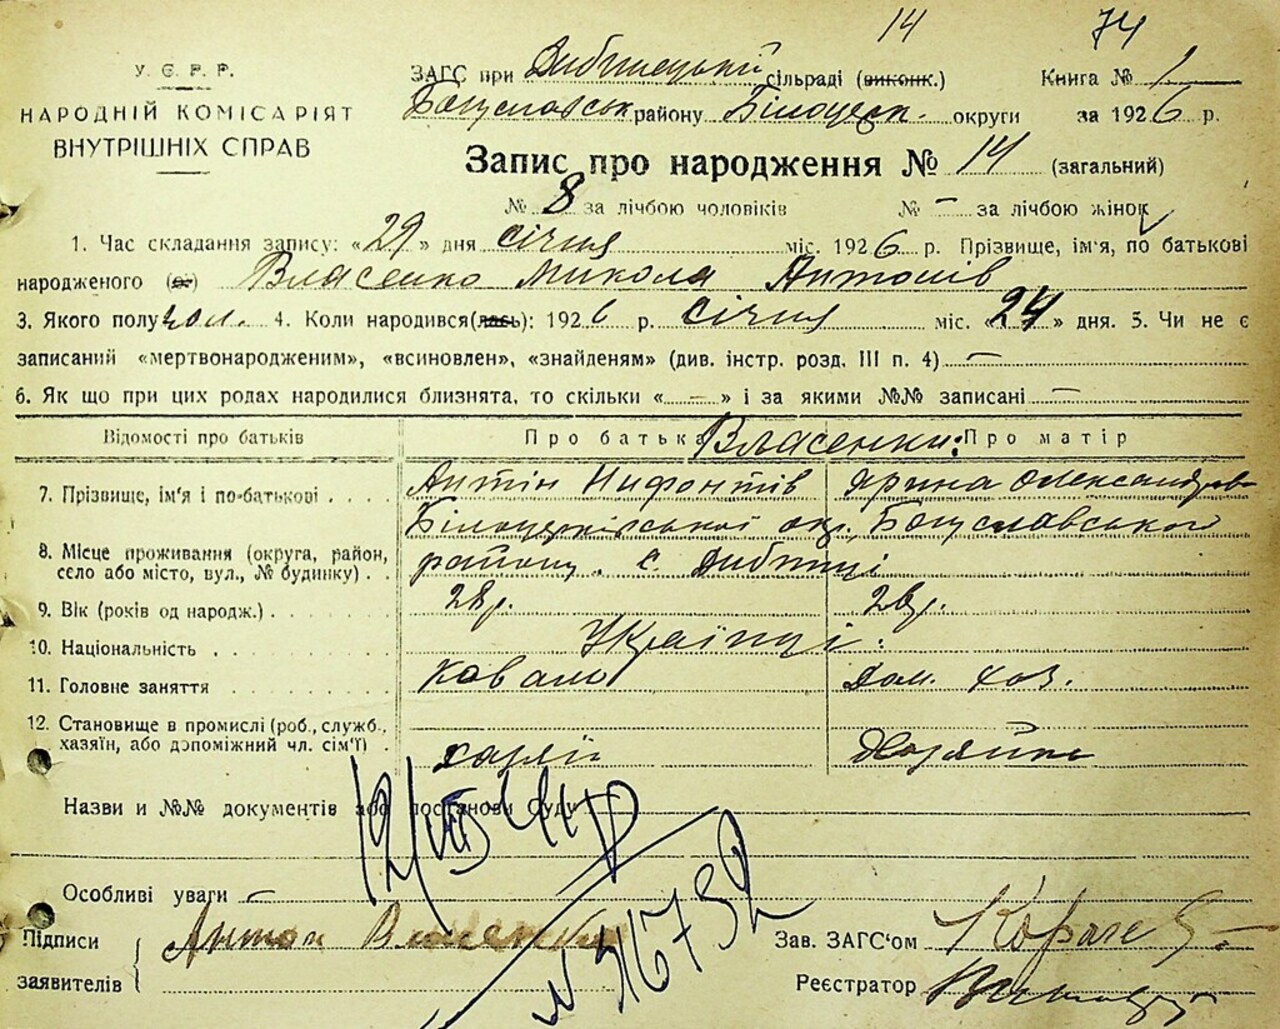 14 74
У. С. Р. Р.
НАРОДНІЙ КОМІСАРІЯТ
ВНУТРІШНІХ СПРАВ
ЗАГС при Дибинецькій сільраді (виконк.) Книга № 1
Богуславськ району Білоцерк. округи за 1926 р.
Запис про народження № 14 (загальний)
№ 8 за лічбою чоловіків № – за лічбою жінок
1. Час складання запису: «29» дня січня міс. 1926 р. Прізвище, ім'я, по батькові
народженого (ої) Власенко Микола Антонів
3. Якого полу чол. 4. Коли народився(лась): 1926 р. січня міс. «24» дня. 5. Чи не є
записаний «мертвонародженим», «всиновлен», «знайденям» (див. інстр. розд. III п. 4) –
6. Як що при цих родах народилися близнята, то скільки « – » і за якими №№ записані –
Відомості про батьків Про батька Власенки: Про матір
7. Прізвище, ім'я і по-батькові Антін Нифонтів Ярина Олександров
Білоцерківської окр. Богуславського
8. Місце проживання (округа, район,
село або місто, вул., № будинку) району. с. Дибинці
9. Вік (років од народж.) 28р. 28р.
10. Національність Українці:
11. Головне заняття Коваль Дом. хоз.
12. Становище в промислі (роб., служб.,
хазяїн, або допоміжний чл. сім'ї)
Назви и №№ документів або постанови суду
12/VIII-44
Особливі уваги –
Підписи
заявителів
Антон Власенко
№ 316732
Зав. ЗАГС'ом
Реєстратор